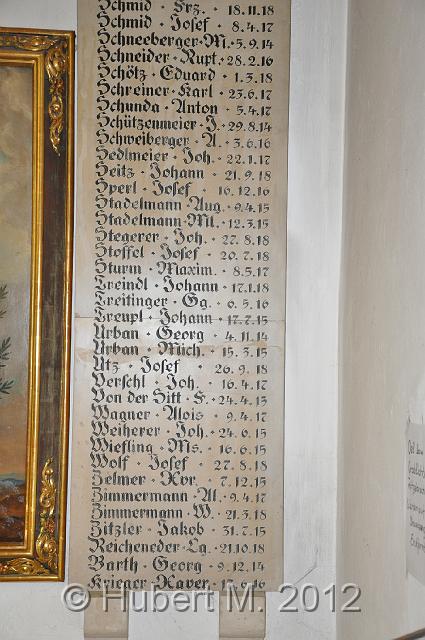 Schmid · Frz. · 18.11.18
Schmid · Josef · 8.4.17
Schneeberger · M. · 5.9.14
Schneider · Rupt. · 28.2.16
Schötz · Eduard · 1.3.18
Schreiner · Karl · 23.6.17
Schunda · Anton · 5.4.17
Schützenmeier · J. · 29.8.14
Schweiberger · A. · 3.6.16
Sedlmeier · Joh. · 22.1.17
Seitz · Johann · 21.9.18
Sperl · Josef · 16.12.16
Stadelmann · Aug. · 9.4.15
Stadelmann · Ml. · 12.3.15
Stegerer · Joh. · 27.8.18
Stoffel · Josef · 20.7.18
Sturm · Maxim. · 8.5.17
Treindl · Johann · 17.1.18
Treitinger · Gg. · 6.5.16
Treupl · Johann · 17.7.15
Urban · Georg · 4.11.14
Urban · Mich. · 15.3.15
Utz · Josef · 26.9.18
Verschl · Joh. · 16.4.17
Von der Sitt · F. · 24.4.15
Wagner · Alois · 9.4.17
Weiherer · Joh. · 24.6.15
Wiefling · Ms. · 16.6.15
Wolf · Josef · 27.8.18
Zelmer · Xov. · 7.12.15
Zimmermann · Al. · 9.4.17
Zimmermann · W. · 21.3.18
Zitzler · Jakob · 31.7.15
Reicheneder · Lg. · 21.10.18
Barth · Georg · 9.12.14
Krieger · Xaver · 17.6.16
© Hubert M. 2012